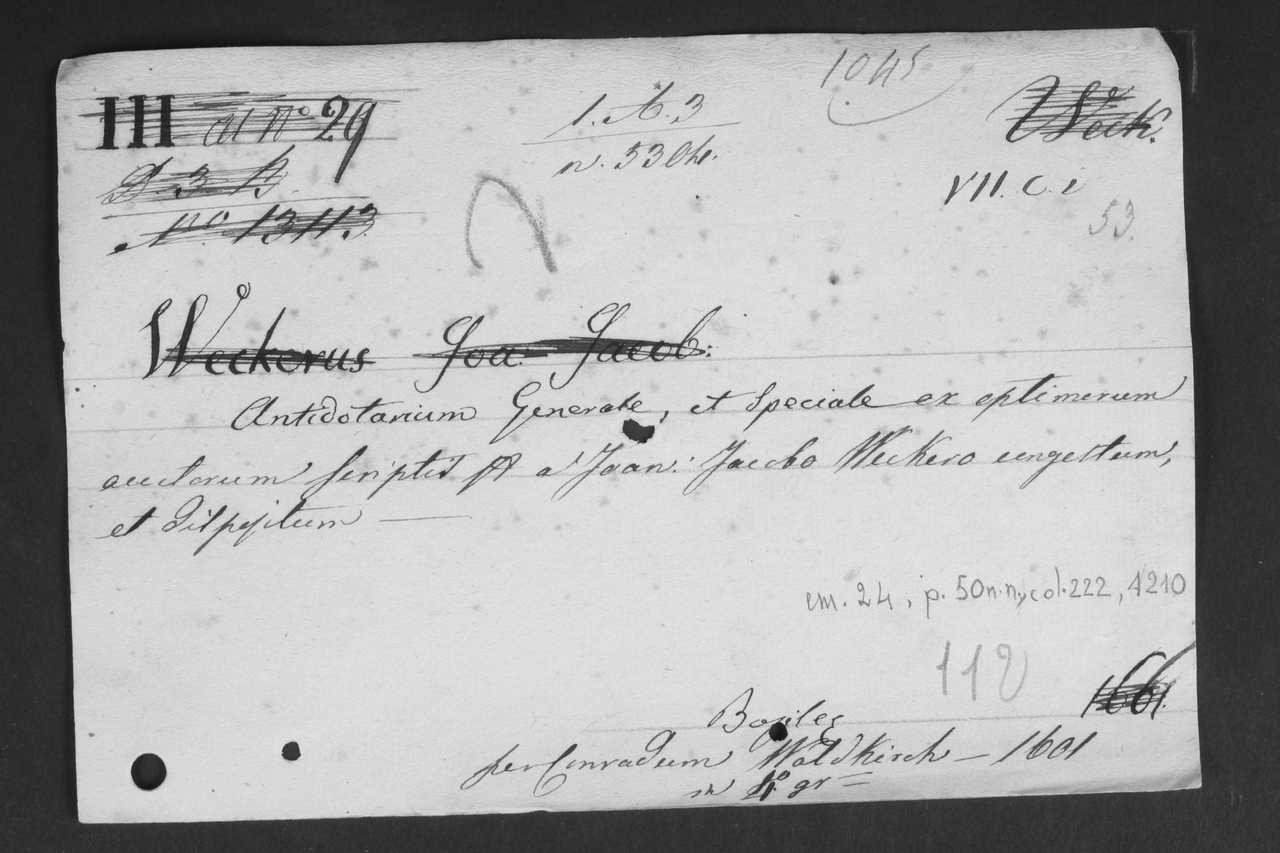 III ad Nº 29
D. 3 B.
Nº 1311.3
1. A. 3
n. 530
1045
Weck.
VII. C. i
53.
Weckerus Joa: Jacob:
Antidotarium Generale, et Speciale ex optimorum
auctorum scriptis a Joan: Jacobo Weckero congestum,
et dispositum —
cm. 24, p. 50 n.n, col. 222, 1210
112
1661.
Basileę
per Conradum Waldkirch — 1601
in 4º gr =